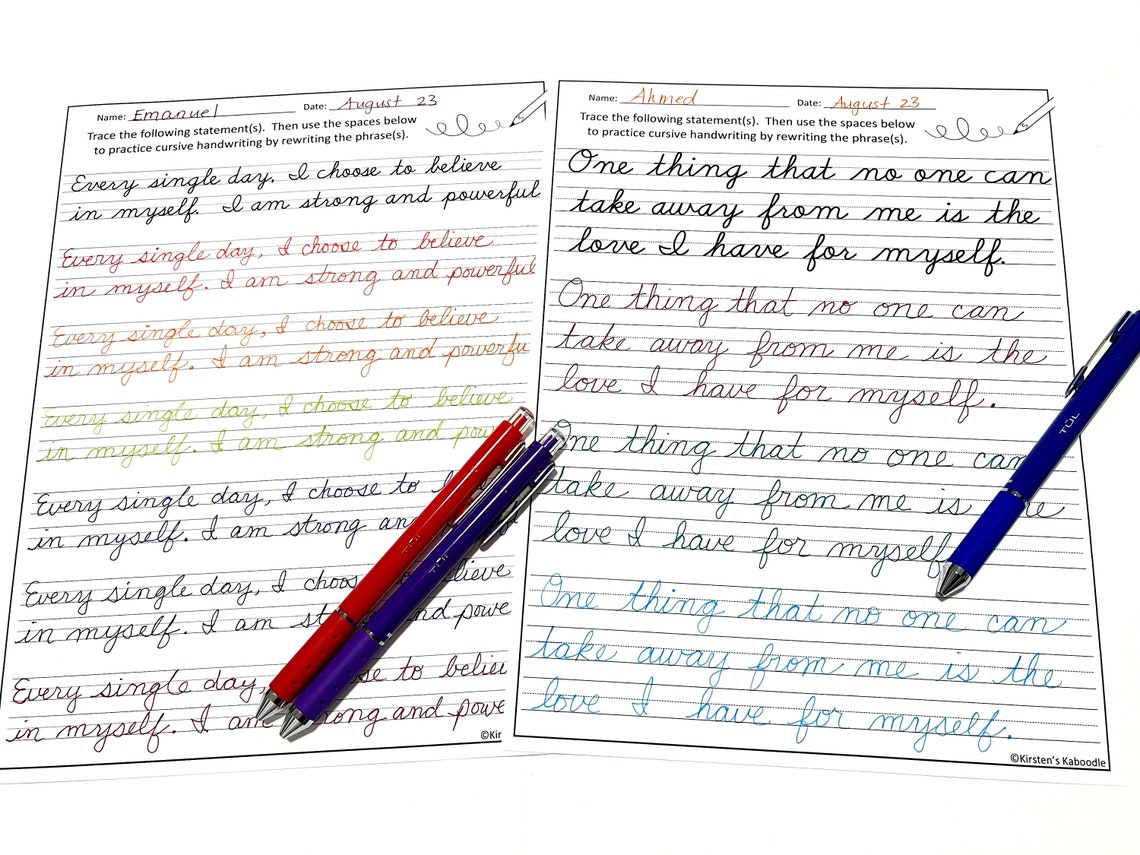 Name: Emanuel Date: August 23
Trace the following statement(s). Then use the spaces below
to practice cursive handwriting by rewriting the phrase(s).
Every single day, I choose to believe
in myself. I am strong and powerful
Every single day, I choose to believe
in myself. I am strong and powerful
Every single day, I choose to believe
in myself. I am strong and powerfu
Every single day, I choose to believe
in myself. I am strong and pow
Every single day, I choose to
in myself. I am strong an
Every single day, I choos lieve
in myself. I am st nd powe
Every single day, se to believ
in myself. I am rong and powe
©Kir
Name: Ahmed Date: August 23
Trace the following statement(s). Then use the spaces below
to practice cursive handwriting by rewriting the phrase(s).
One thing that no one can
take away from me is the
love I have for myself.
One thing that no one can
take away from me is the
love I have for myself.
One thing that no one can
take away from me is he
love I have for myself
One thing that no one can
take away from me is the
love I have for myself.
©Kirsten's Kaboodle
TUL
TUL
TUL